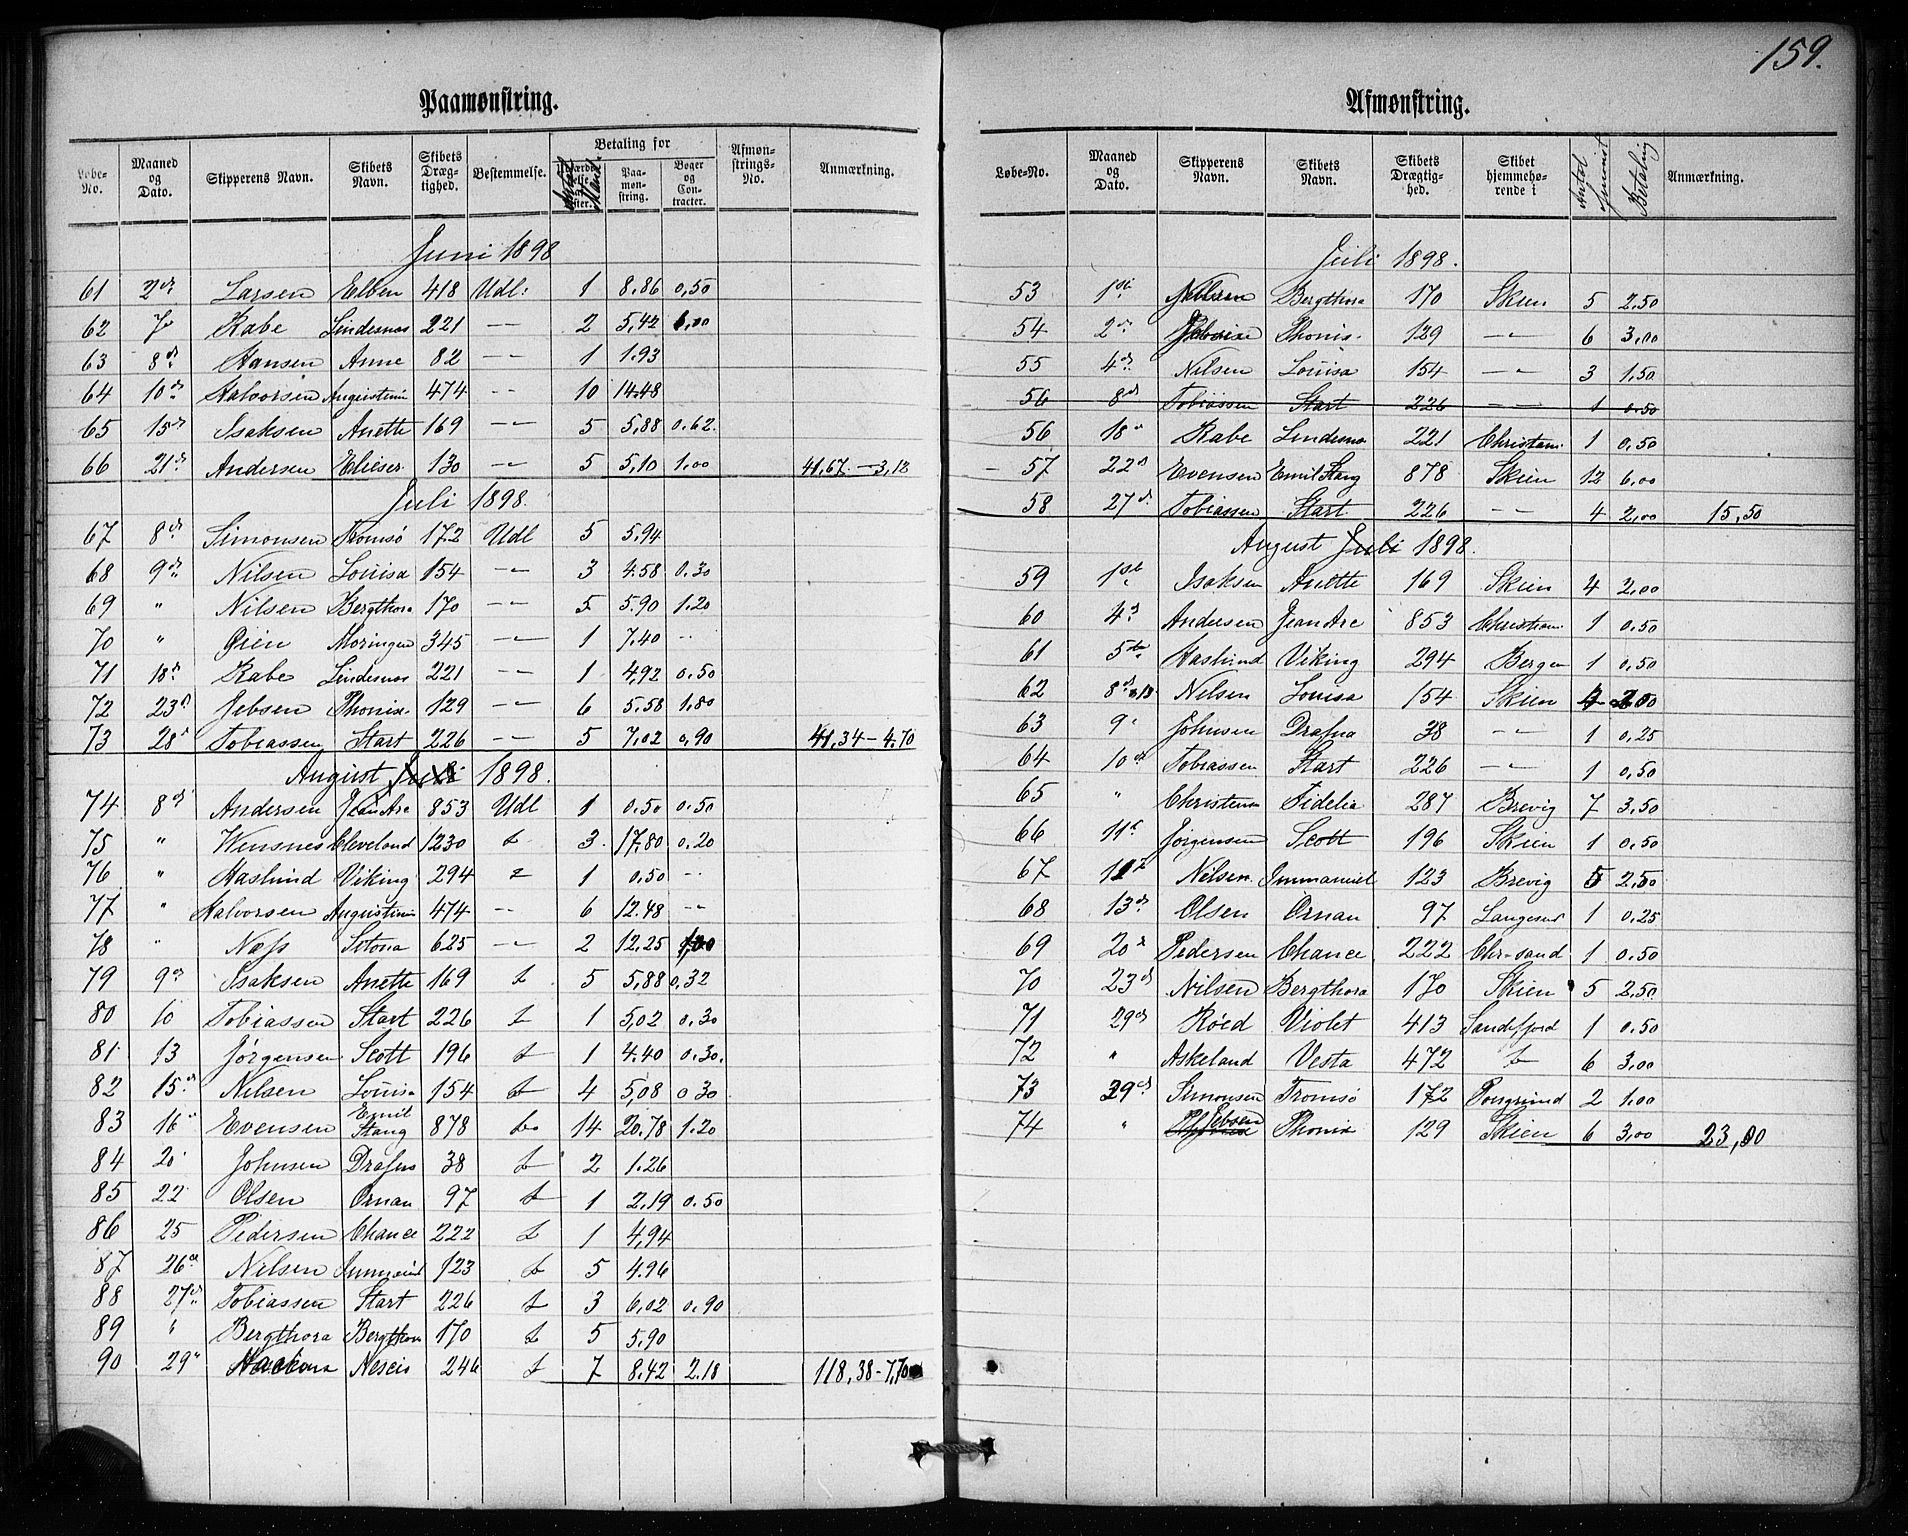 159.
Paamønstring.
Løbe-No. Maaned og Dato. Skipperens Navn. Skibets Navn. Skibets Dræg-tighed. Bestemmelse. Antal Mand. Betaling for Paa-mon-string. Bøger og Con-tracter. Afmøn-strings-No. Anmærkning.
Juni 1898
61 2den Larsen Elben 418 Udl: 1 8.86 0,50
62 7de Rabe Lindesnæs 221 -"- 2 5,42 1,00
63 8de Hansen Anne 82 -"- 1 1.93
64 10de Halvorsen Augustinus 474 -"- 10 14.48
65 15de Isaksen Anette 169 -"- 5 5,88 0.62
66 21de Andersen Elieser 130 -"- 5 5,10 1.00 41,67.-3,12
Juli 1898.
67 8de Simonsen Tromsø 172 Udl 5 5.94
68 9de Nilsen Louisa 154 -"- 3 4.58 0.30
69 " Nilsen Bergthora 170 -"- 5 5.90 1.20
70 " Gien Moringen 345 -"- 1 7.40 --
71 18de Rabe Lindesnæs 221 -"- 1 4,92 0.50
72 23de Jebsen Phønix 129 -"- 6 5.58 1.80
73 28de Tobiassen Start 226 -"- 5 7,02 0,90 41,34-4.70
August Juli 1898.
74 8de Andersen Jean Arc 853 Udl 1 0.50 0.50
75 " Wensnes Cleveland 1230 - 3 17.80 0.20
76 " Haslund Viking 294 - 1 0.50 --
77 " Halvorsen Augustinus 474 -- 6 12.48 --
78 " Næss Sitona 625 -"- 2 12.25
79 9de Isaksen Anette 169 - 5 5,88 0,32
80 10 Tobiassen Start 226 - 1 5,02 0.30
81 13 Jørgensen Scott 196 - 1 4.40 0.30.
82 15de Nilsen Louisa 154 - 4 5,08 0 30
83 16 Evensen Emil Stang 878 - 14 20.78 1.20
84 20 Johnsen Drafna 38 - 2 1.26
85 22 Olsen Ørnan 97 - 1 2.19 0.50
86 25 Pedersen Chance 222 - 1 4,94
87 26de Nilsen Immanuel 123 - 5 4.96
88 27de Tobiassen Start 226 - 3 6,02 0.90
89 " Bergthora Bergthora 170 - 5 5.90
90 29 Nescis 246 - 7 8.42 2.18 118,38-7,70
Afmønstring.
Løbe-No. Maaned og Dato. Skipperens Navn. Skibets Navn. Skibets Drægtig-hed. Skibet hjemmehø-rende i Antal Betaling Anmærkning.
Juli 1898.
53 1ste Nilsen Bergthora 170 Skien 5 2.50
54 2den Phønix 129 -"- 6 3,00
55 4de Nilsen Louisa 154 -"- 3 1,50
56 8de Tobiassen Start 226 -- 1 0.50
56 18de Rabe Lindesnæs 221 Christiania 1 0,50
- 57 22de Evensen Emil Stang 878 Skien 12 6,00
58 27de Tobiassen Start 226 -- 4 2,00 15,50
August Juli 1898.
59 1ste Isaksen Anette 169 Skien 4 2,00
60 4de Andersen Jean Arc 853 Christiania 1 0.50
61 5te Haslund Viking 294 Bergen 1 0,50
62 8de Nilsen Louisa 154 Skien 4 2,00
63 9de Johnsen Drafna 38 -"- 1 0,25
64 10de Tobiassen Start 226 -"- 1 0,50
65 " Christensen Fidelia 287 Brevig 7 3,50
66 11te Jørgensen Scott 196 Skien 1 0.50
67 11te Nilsen Immanuel 123 Brevig 5 2,50
68 13de Olsen Ørnan 97 Langesund 1 0,25
69 20de Pedersen Chance 222 Chr-sand 1 0.50
70 23de Nilsen Bergthora 170 Skien 5 2,50
71 29de Røed Violet 413 Sandefjord 1 0.50
72 " Askeland Vesta 472 - 6 3,00
73 29de Simonsen Tromsø 172 Porsgrund 2 1.00
74 " Jebsen Phønix 129 Skien 6 3,00 23,00